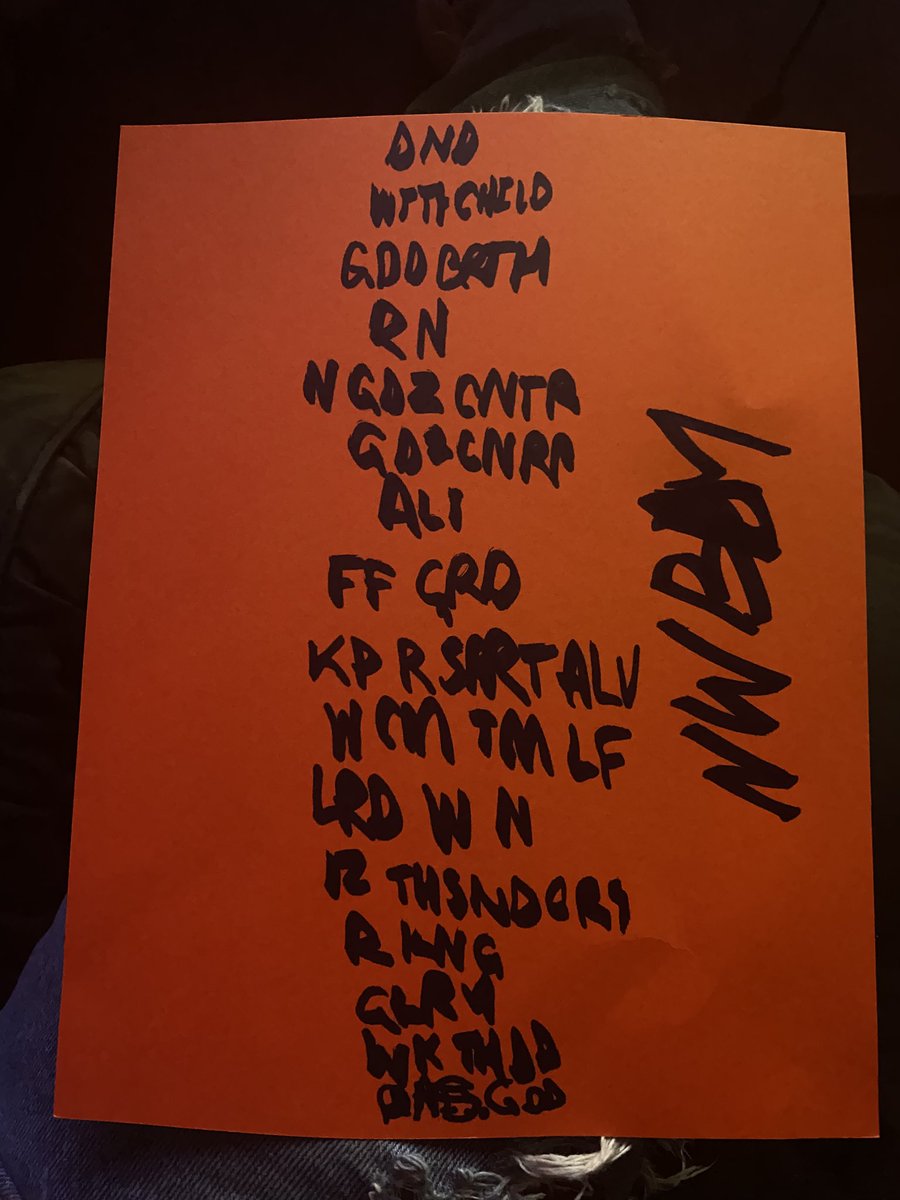 DND
WTTHCHILD
GDD BRTH
RN
N GDZ CNTR
GDZCNRR
ALI
FF GRD
KP R SPRT ALV
W CM TM LF
LRD W N
R THSNDORS
R KNG
GLRY
WK TH DD